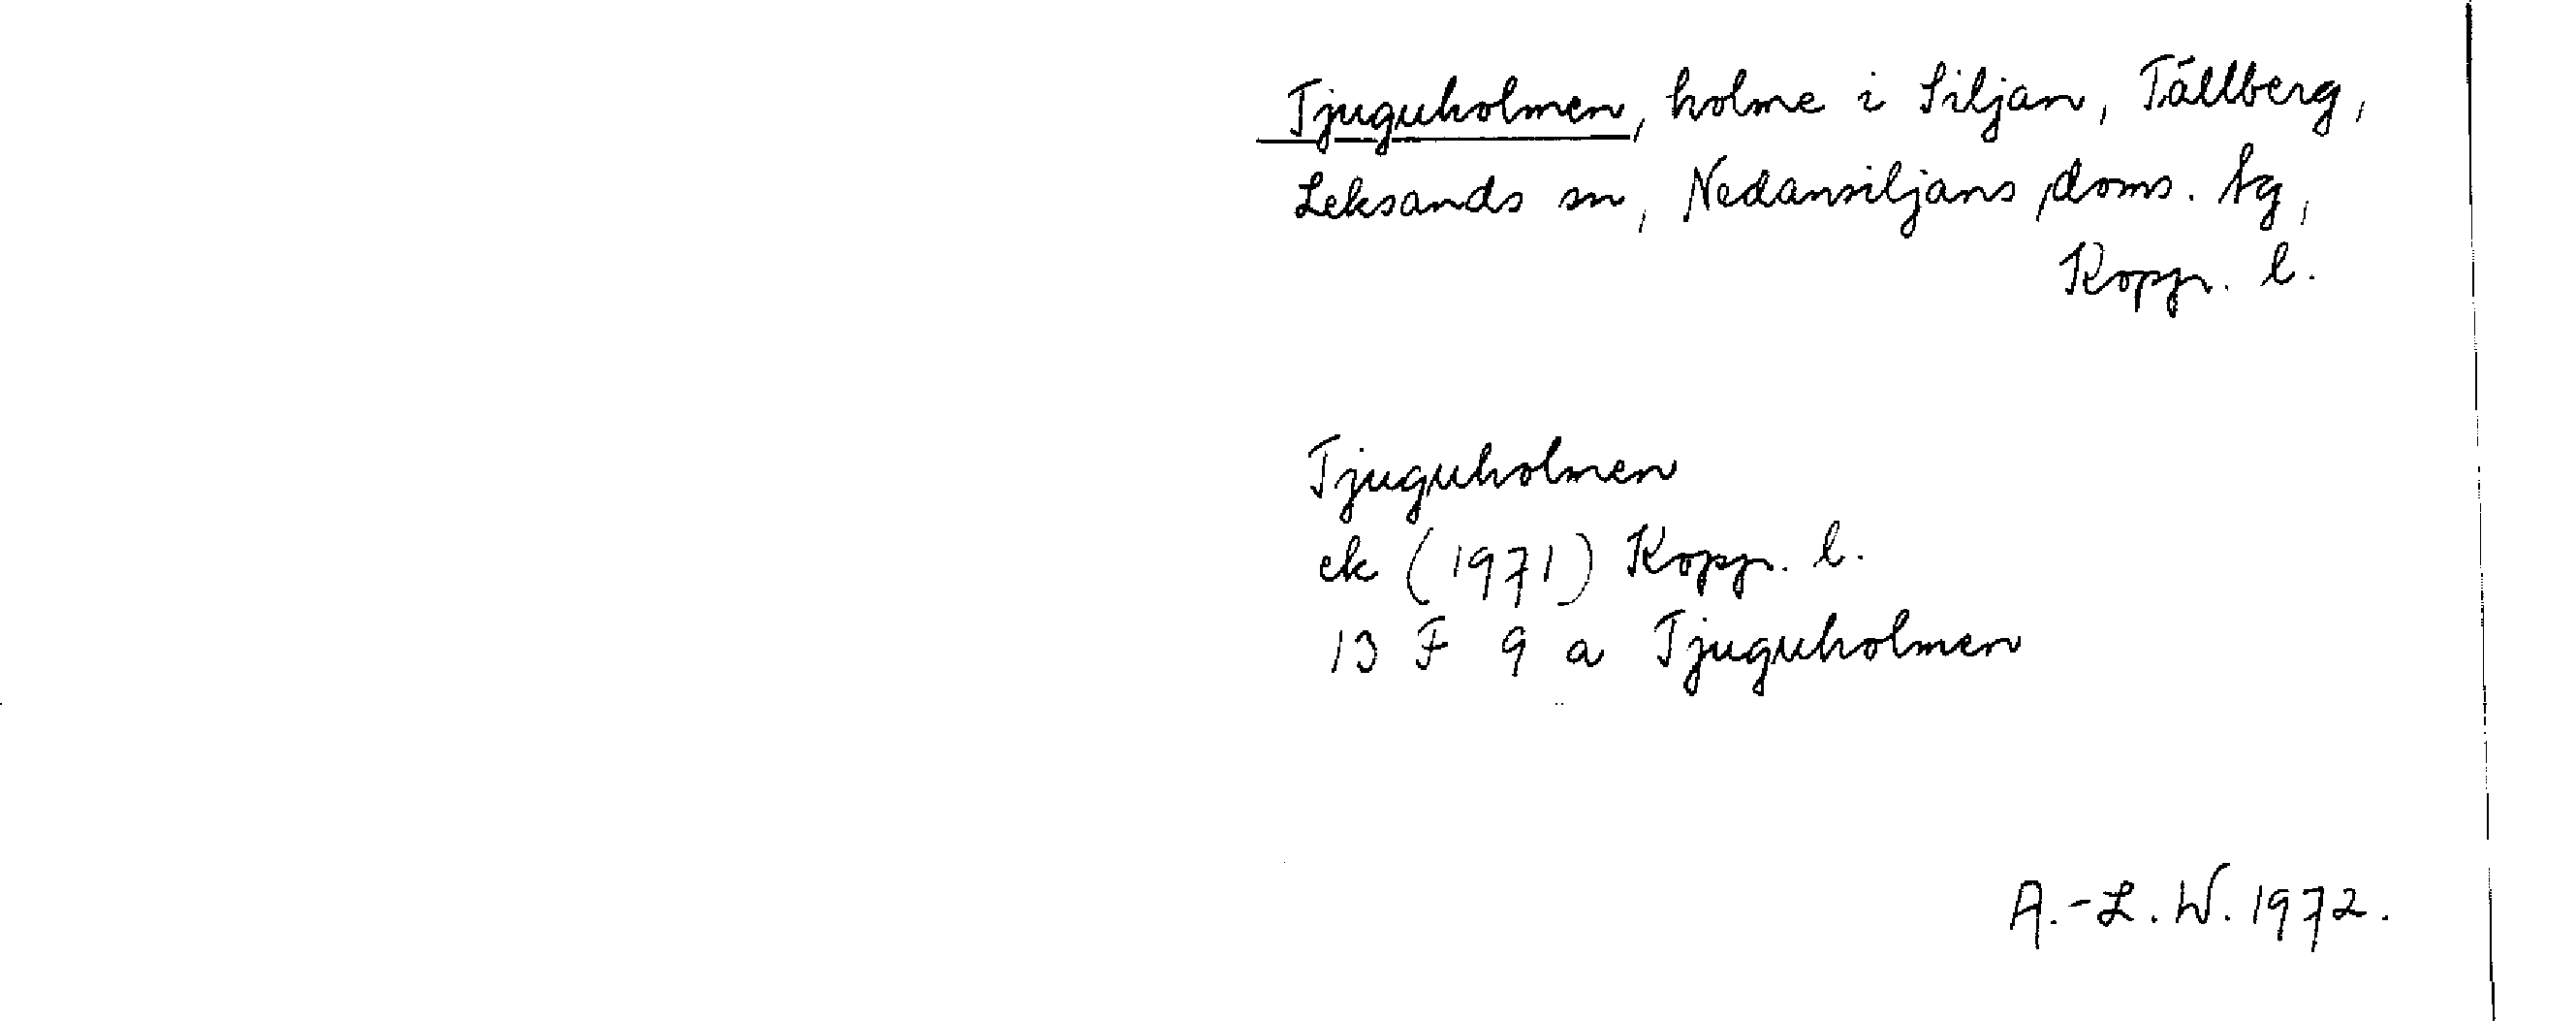 Tjuguholmen, holme i Siljan, Tällberg,
Leksands sn, Nedansiljans doms. tg,
Kopp. l.
Tjuguholmen
ek (1971) Kopp. l.
13 F 9 a Tjuguholmen
A.-L. W. 1972.